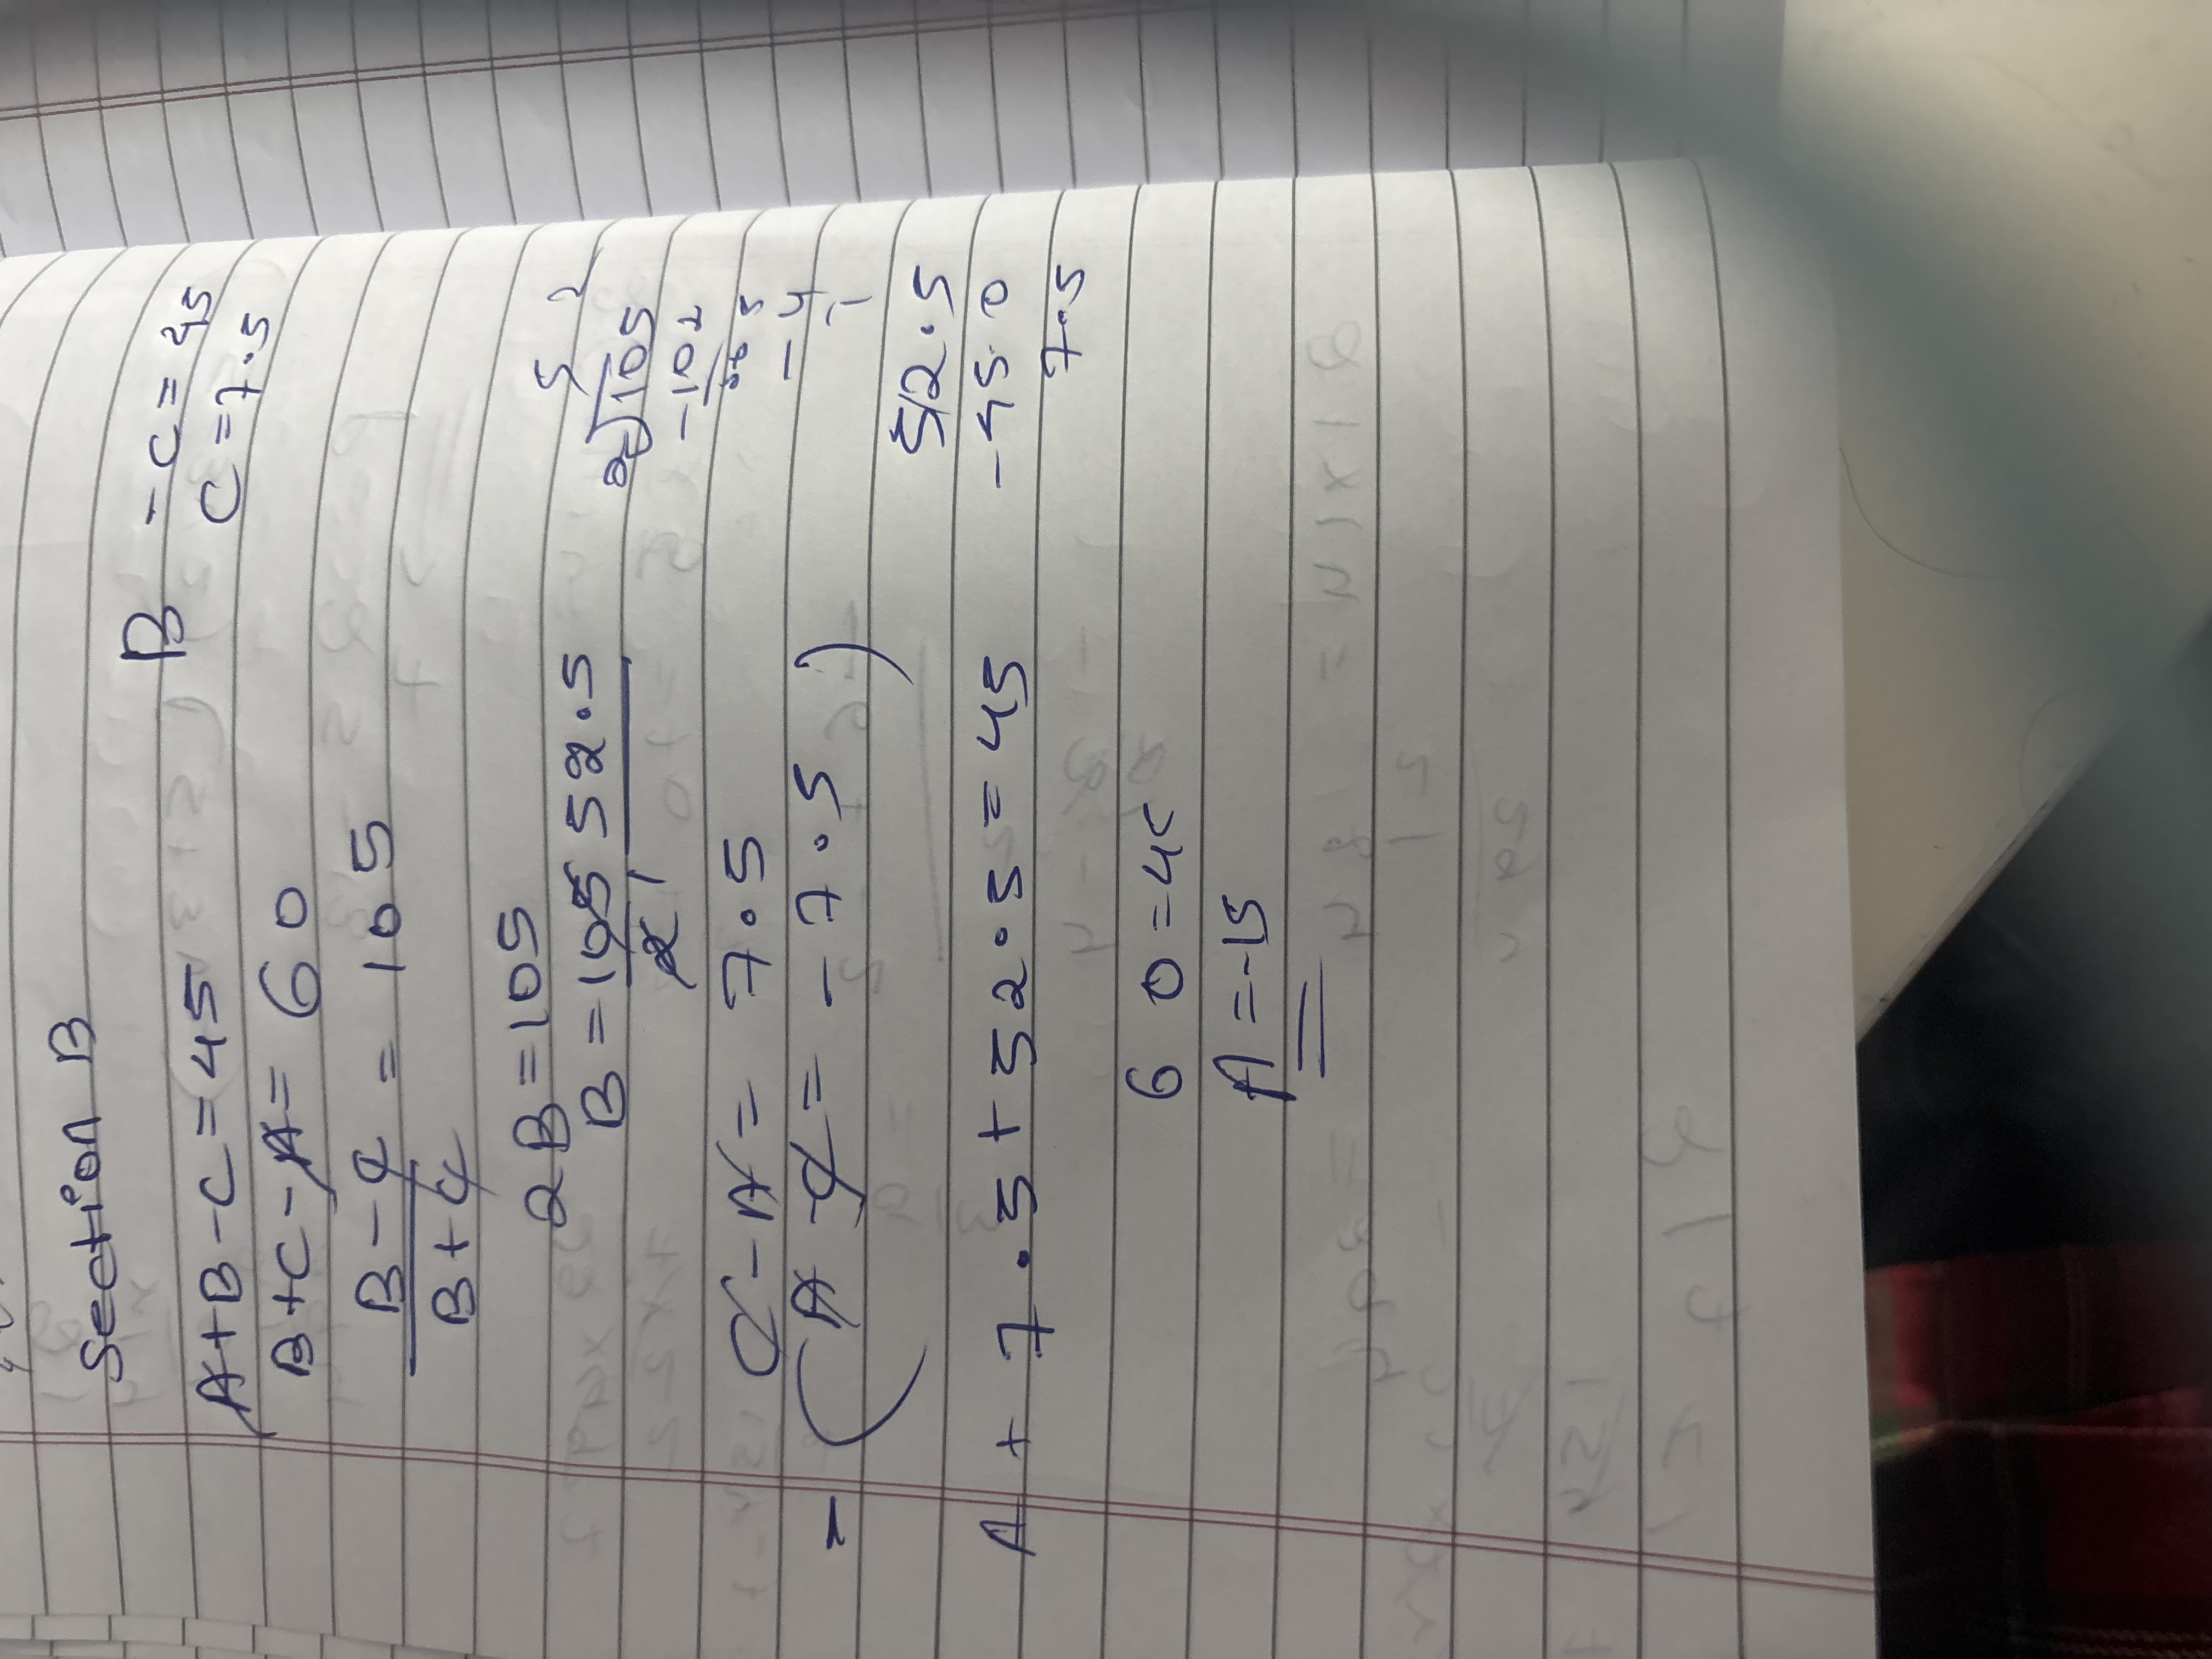 Section B
B - C = 45
C = 7.5
A + B - C = 45
B + C - A = 60
B - C = 105
B + C
2B = 105
B = 105 52.5
2 1
5 2
2 105
-10
5
- 4
1
C - A = 7.5
- (A - C = - 7.5)
52.5
- 45.0
7.5
A + 7.5 + 52.5 = 45
60 = 45
A = -15